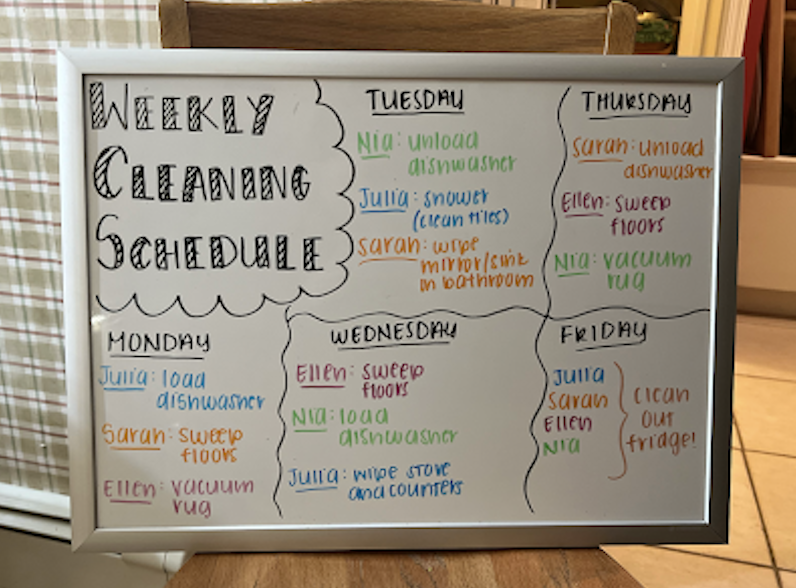 WEEKLY
CLEANING
SCHEDULE
MONDAY
Julia: load
dishwasher
Sarah: sweep
floors
Ellen: vacuum
rug
TUESDAY
Nia: unload
dishwasher
Julia: shower
(clean tiles)
Sarah: wipe
mirror/sink
in bathroom
WEDNESDAY
Ellen: sweep
floors
Nia: load
dishwasher
Julia: wipe stove
and counters
THURSDAY
Sarah: unload
dishwasher
Ellen: sweep
floors
Nia: vacuum
rug
FRIDAY
Julia
Sarah
Ellen
Nia
clean
out
fridge!